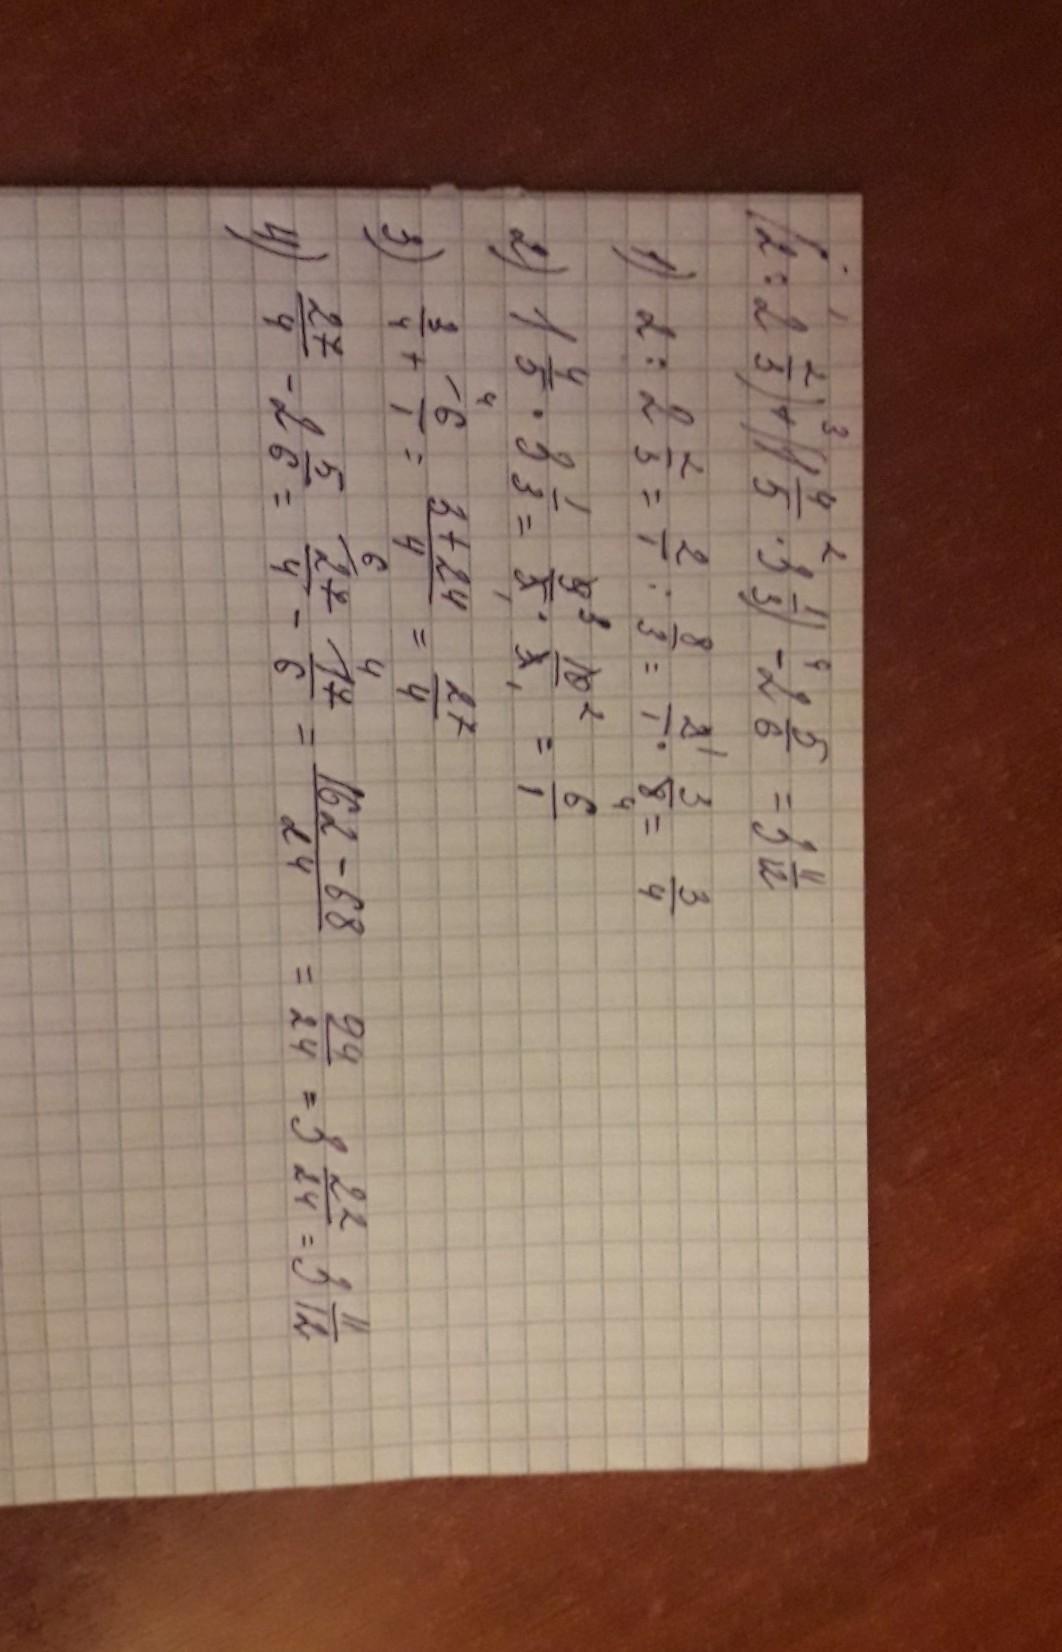 (2 : 2 2/3) + (1 4/5 · 3 1/3) - 2 5/6 = 3 11/12
1) 2 : 2 2/3 = 2/1 : 8/3 = 2/1 · 3/8 = 3/4
2) 1 4/5 · 3 1/3 = 9/5 · 10/3 = 6/1
3) 3/4 + 6/1 = 3+24/4 = 27/4
4) 27/4 - 2 5/6 = 27/4 - 17/6 = 162-68/24 = 94/24 = 3 22/24 = 3 11/12